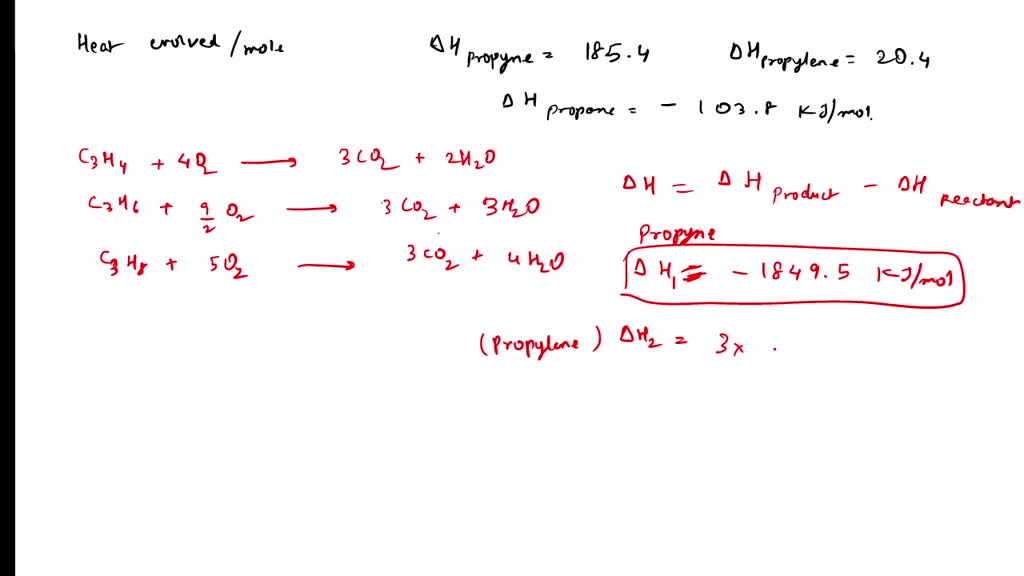 Heat evolved/mole
ΔH propyne = 185.4
ΔH propylene = 20.4
ΔH propane = - 103.8 KJ/mol.
C3H4 + 4O2 → 3CO2 + 2H2O
C3H6 + 9/2 O2 → 3CO2 + 3H2O
C3H8 + 5O2 → 3CO2 + 4H2O
ΔH = ΔH product - ΔH reactant
Propyne
ΔH1 = - 1849.5 KJ/mol
(Propylene) ΔH2 = 3x .